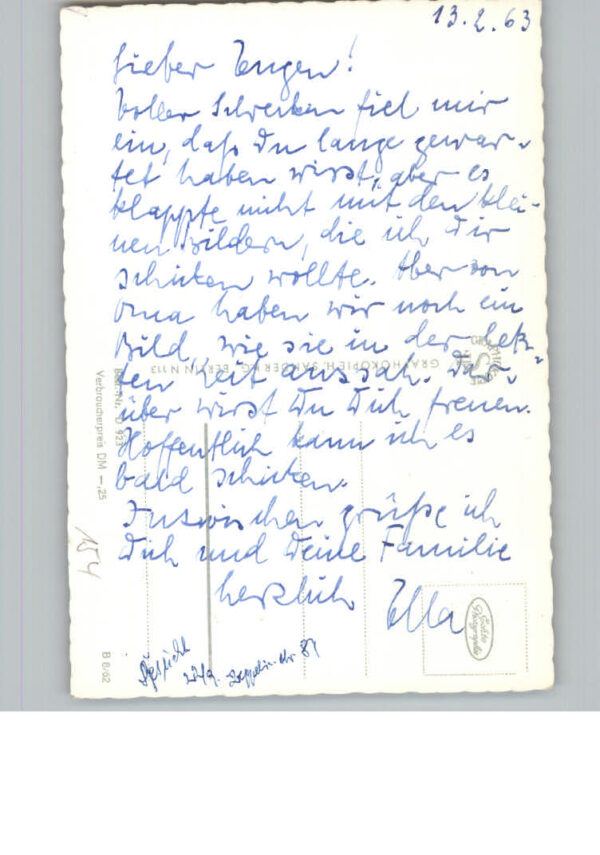 13.2.63
Lieber Eugen!
Voller Schrecken fiel mir
ein, daß Du lange gewar-
tet haben wirst, aber es
klappte nicht mit den klei-
nen Bildern, die ich Dir
schicken wollte. Aber von
Oma haben wir noch ein
Bild, wie sie in der letz-
ten Zeit aussah. Dar-
über wirst Du Dich freuen.
Hoffentlich kann ich es
bald schicken.
Inzwischen grüße ich
Dich und Deine Familie
herzlich Ella
GRAPHOKOPIE H. SANDER KG. BERLIN N 113
Best.-Nr. D 923
Verbraucherpreis DM -,25
154
B 8/62
Echte
Photographie